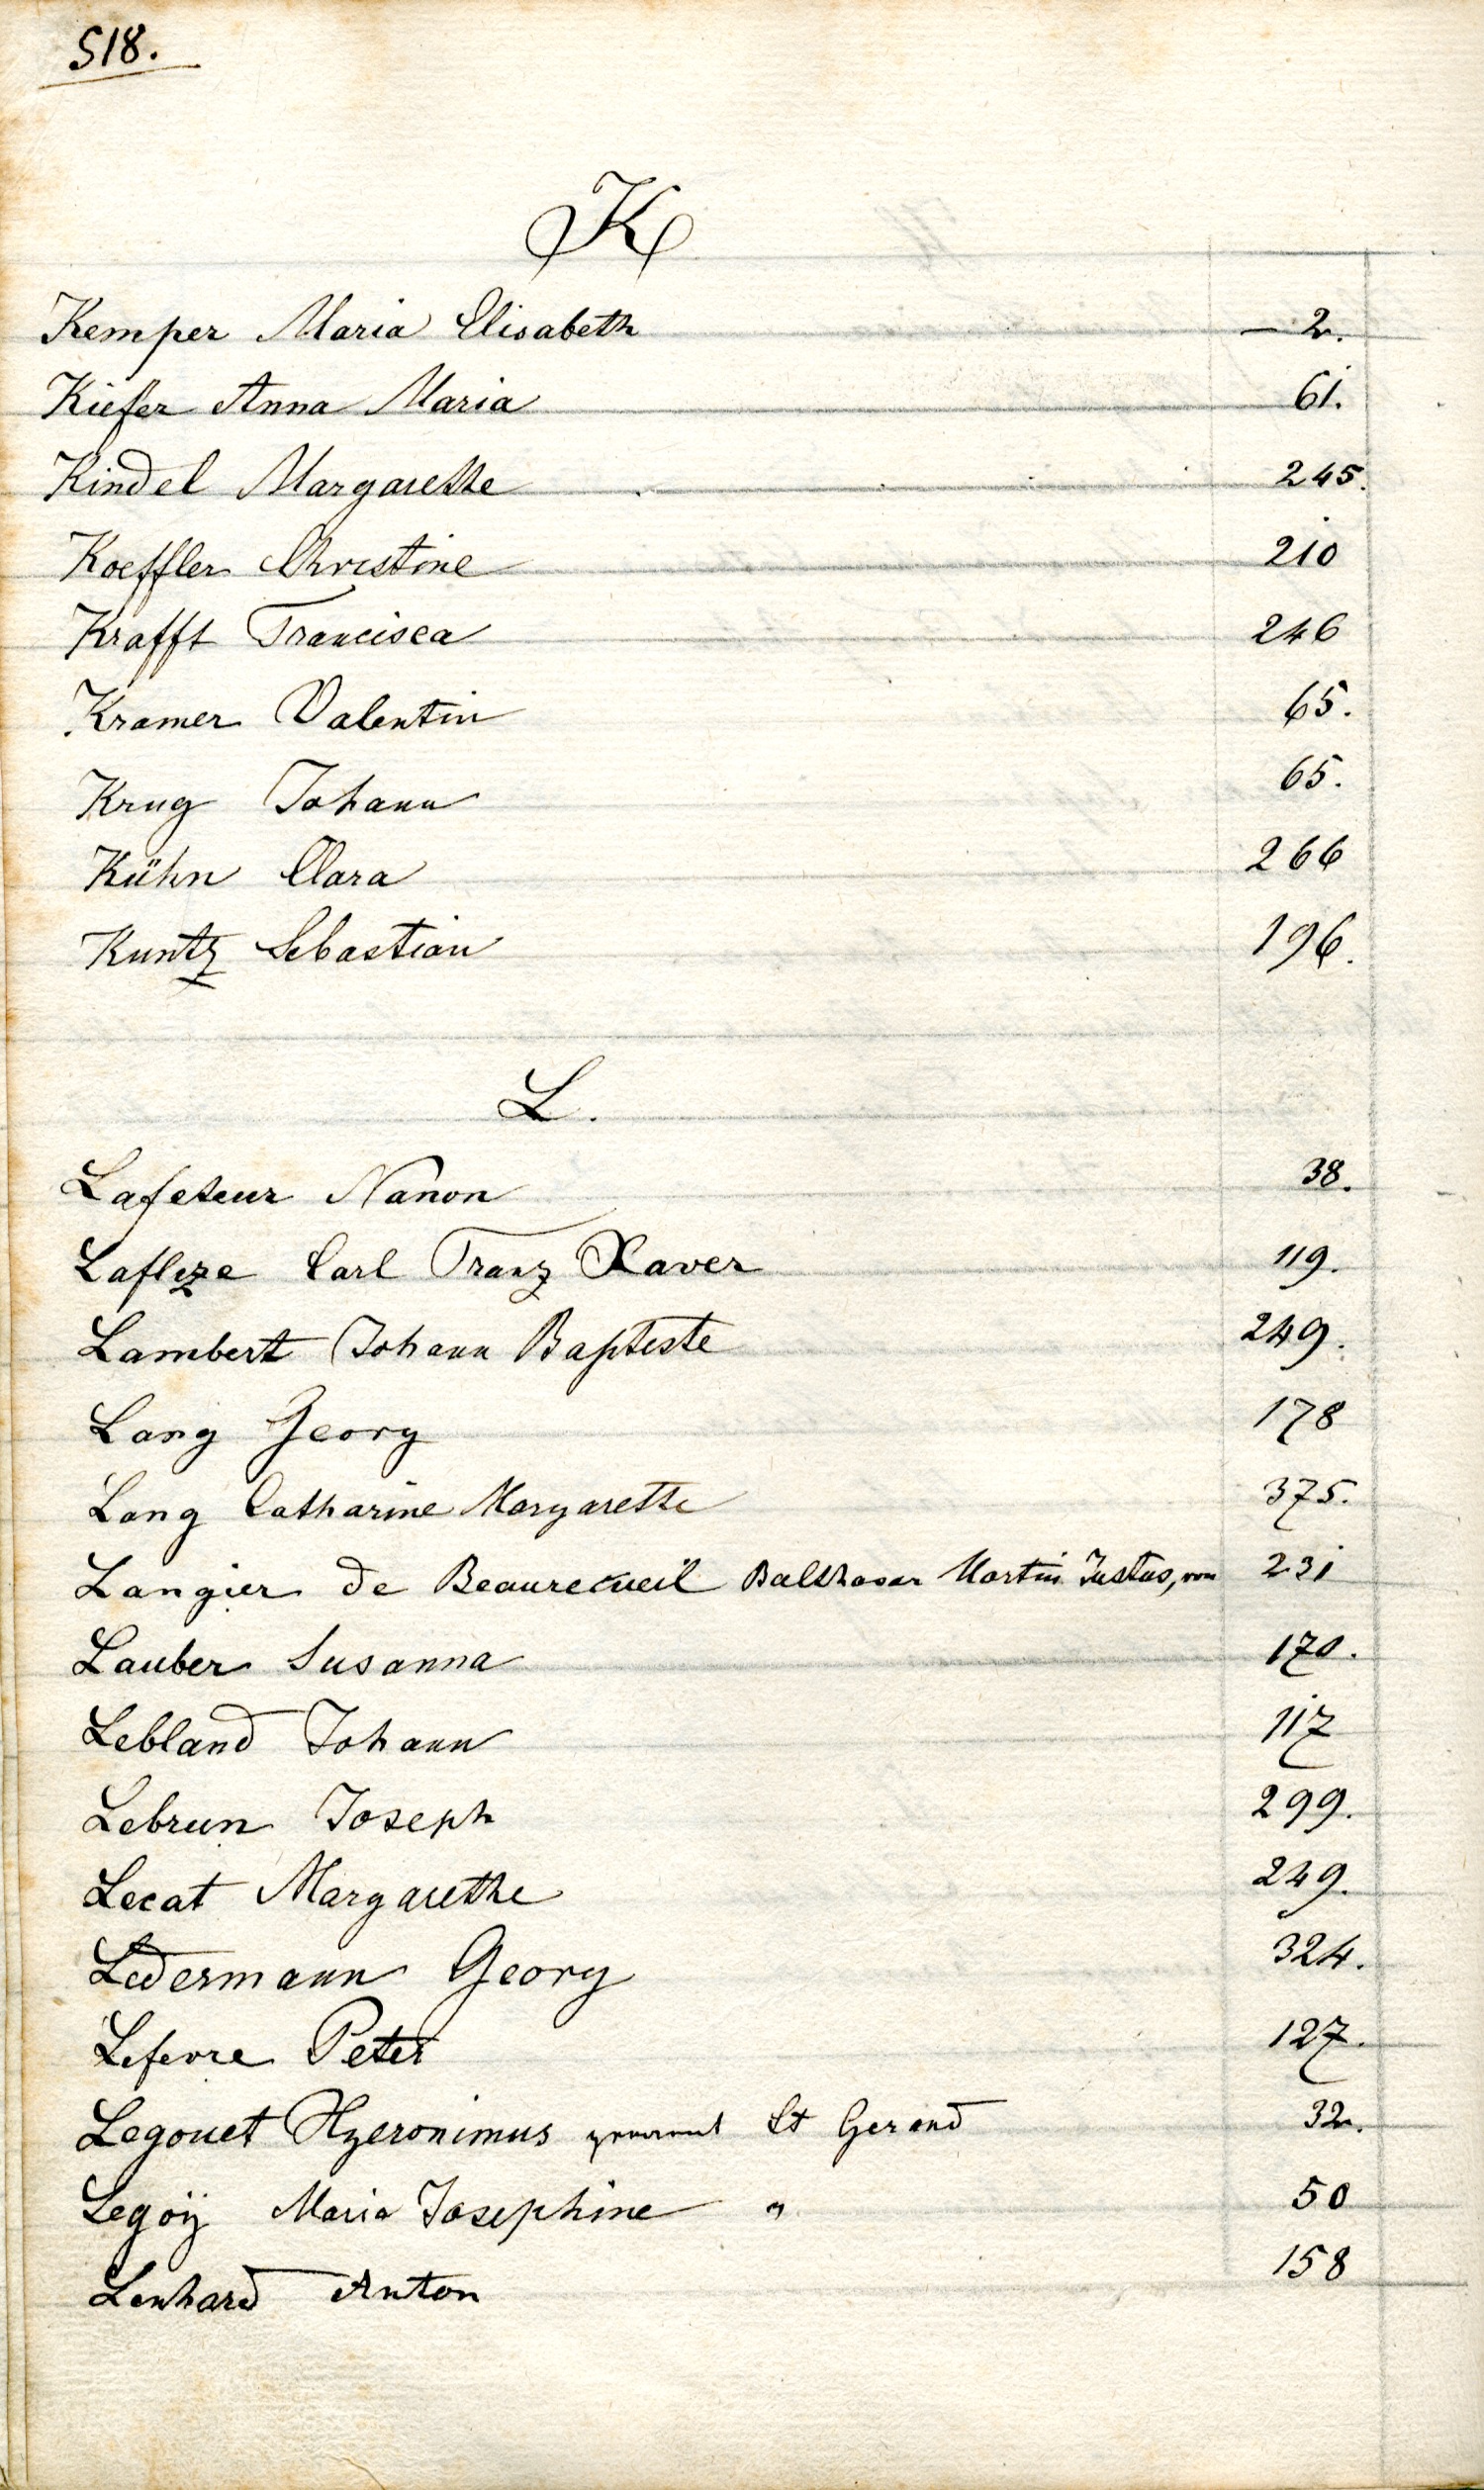 518.
K
Kemper Maria Elisabeth — 2.
Kiefer Anna Maria 61.
Kindel Margarethe 245.
Koeffler Christine 210
Krafft Francisca 246
Kramer Valentin 65.
Krug Johann 65.
Kühn Clara 266
Kuntz Sebastian 196.
L.
Lafeteur Nanon 38.
Lafleze Carl Franz Xaver 119.
Lambert Johann Baptiste 249.
Lang Georg 178
Lang Catharine Margarethe 375.
Langier de Beaurecueil Balthasar Martin Justus, von 231
Lauber Susanna 170.
Lebland Johann 117
Lebrun Joseph 299.
Lecat Margarethe 249.
Ledermann Georg 324.
Lefevre Peter 127.
Legouet Hyeronimus genannt St Gerand 32.
Legoÿ Maria Josephine " 50
Lenhard Anton 158